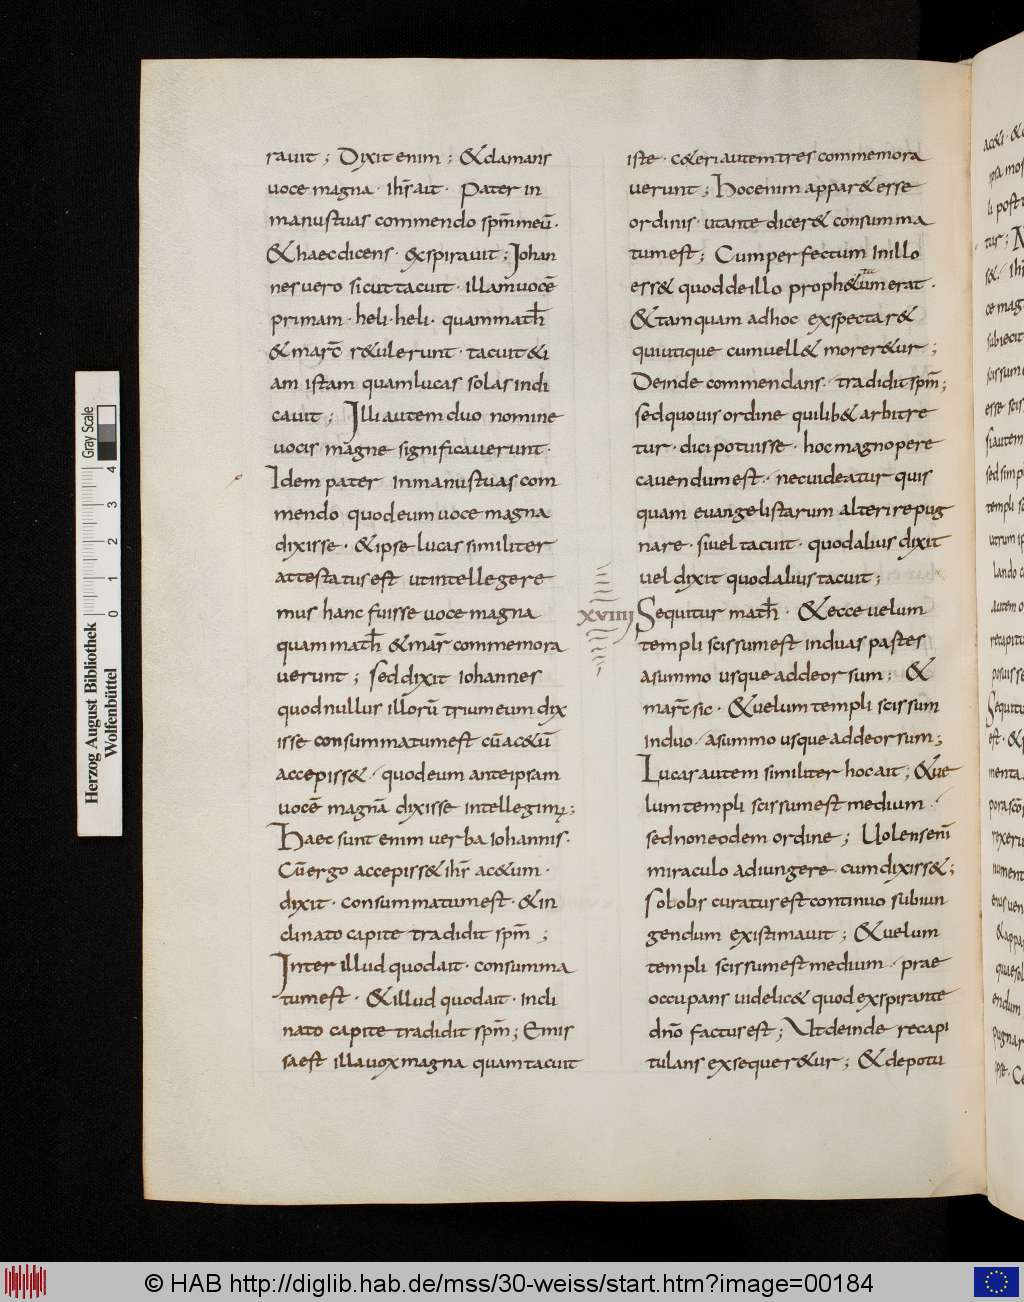 rauit ; Dixit enim ; & clamans
uoce magna · ihs̄ ait · Pater in
manus tuas commendo spm̄ meū ·
& haec dicens · exspirauit ; Johan
nes uero sicut tacuit · illam uocē
primam · heli · heli · quam math̄
& marc̄ r&ulerunt · tacuit & i
am istam quam lucas solas indi
cauit ; Illi autem duo nomine
uocis magne significauerunt ·
Idem pater in manus tuas com
mendo quod eum uoce magna
dixisse · & ipse lucas similiter
attestatus est ut intellegere
mus hanc fuisse uoce magna
quam math̄ & mar̄ commemora
uerunt ; sed dixit iohannes
quod nullus illorū trium eum dix
isse consummatum est cū ac&ū
accepiss& · quod eum ante ipsam
uocē magnā dixisse intellegim; ;
Haec sunt enim uerba iohannis ·
Cū ergo accepiss& ihs̄ ac&um ·
dixit · consummatum est · & in
clinato capite tradidit spm̄ ;
Inter illud quod ait · consumma
tum est · & illud quod ait · incli
nato capite tradidit spm̄ ; Emis
sa est illa uox magna quam tacuit
iste · c&eri autem tres commemora
uerunt ; Hoc enim appar& esse
ordinis · ut ante dicer& consumma
tum est ; Cum perfectum in illo
ess& quod de illo proph&atum erat ·
& tamquam adhoc exspectar&
qui utique cum uell& morer&ur ;
Deinde commendans · tradidit spm̄ ;
sed quouis ordine quilib& arbitre
tur · dici potuisse · hoc magnopere
cauendum est · ne cuideatur quis
quam euangelistarum alteri repug
nare · si uel tacuit · quod alius dixit
uel dixit quod alius tacuit ;
XVIIII Sequitur math̄ · & ecce uelum
templi scissum est in duas partes
a summo usque ad deorsum ; &
marc̄ sic · & uelum templi scissum
in duo · a summo usque ad deorsum ;
Lucas autem similiter hoc ait ; & ue
lum templi scissum est medium ·
sed non eodem ordine ; Uolens enī
miraculo adiungere cum dixiss& ;
Sol obscuratus est continuo subiun
gendum existimauit ; & uelum
templi scissum est medium · prae
occupans uidelic& quod exspirante
dn̄o factus est ; Ut deinde recapi
tulans exsequer&ur ; & de potu
Herzog August Bibliothek
Wolfenbüttel
0 1 2 3 4
Gray Scale
© HAB http://diglib.hab.de/mss/30-weiss/start.htm?image=00184